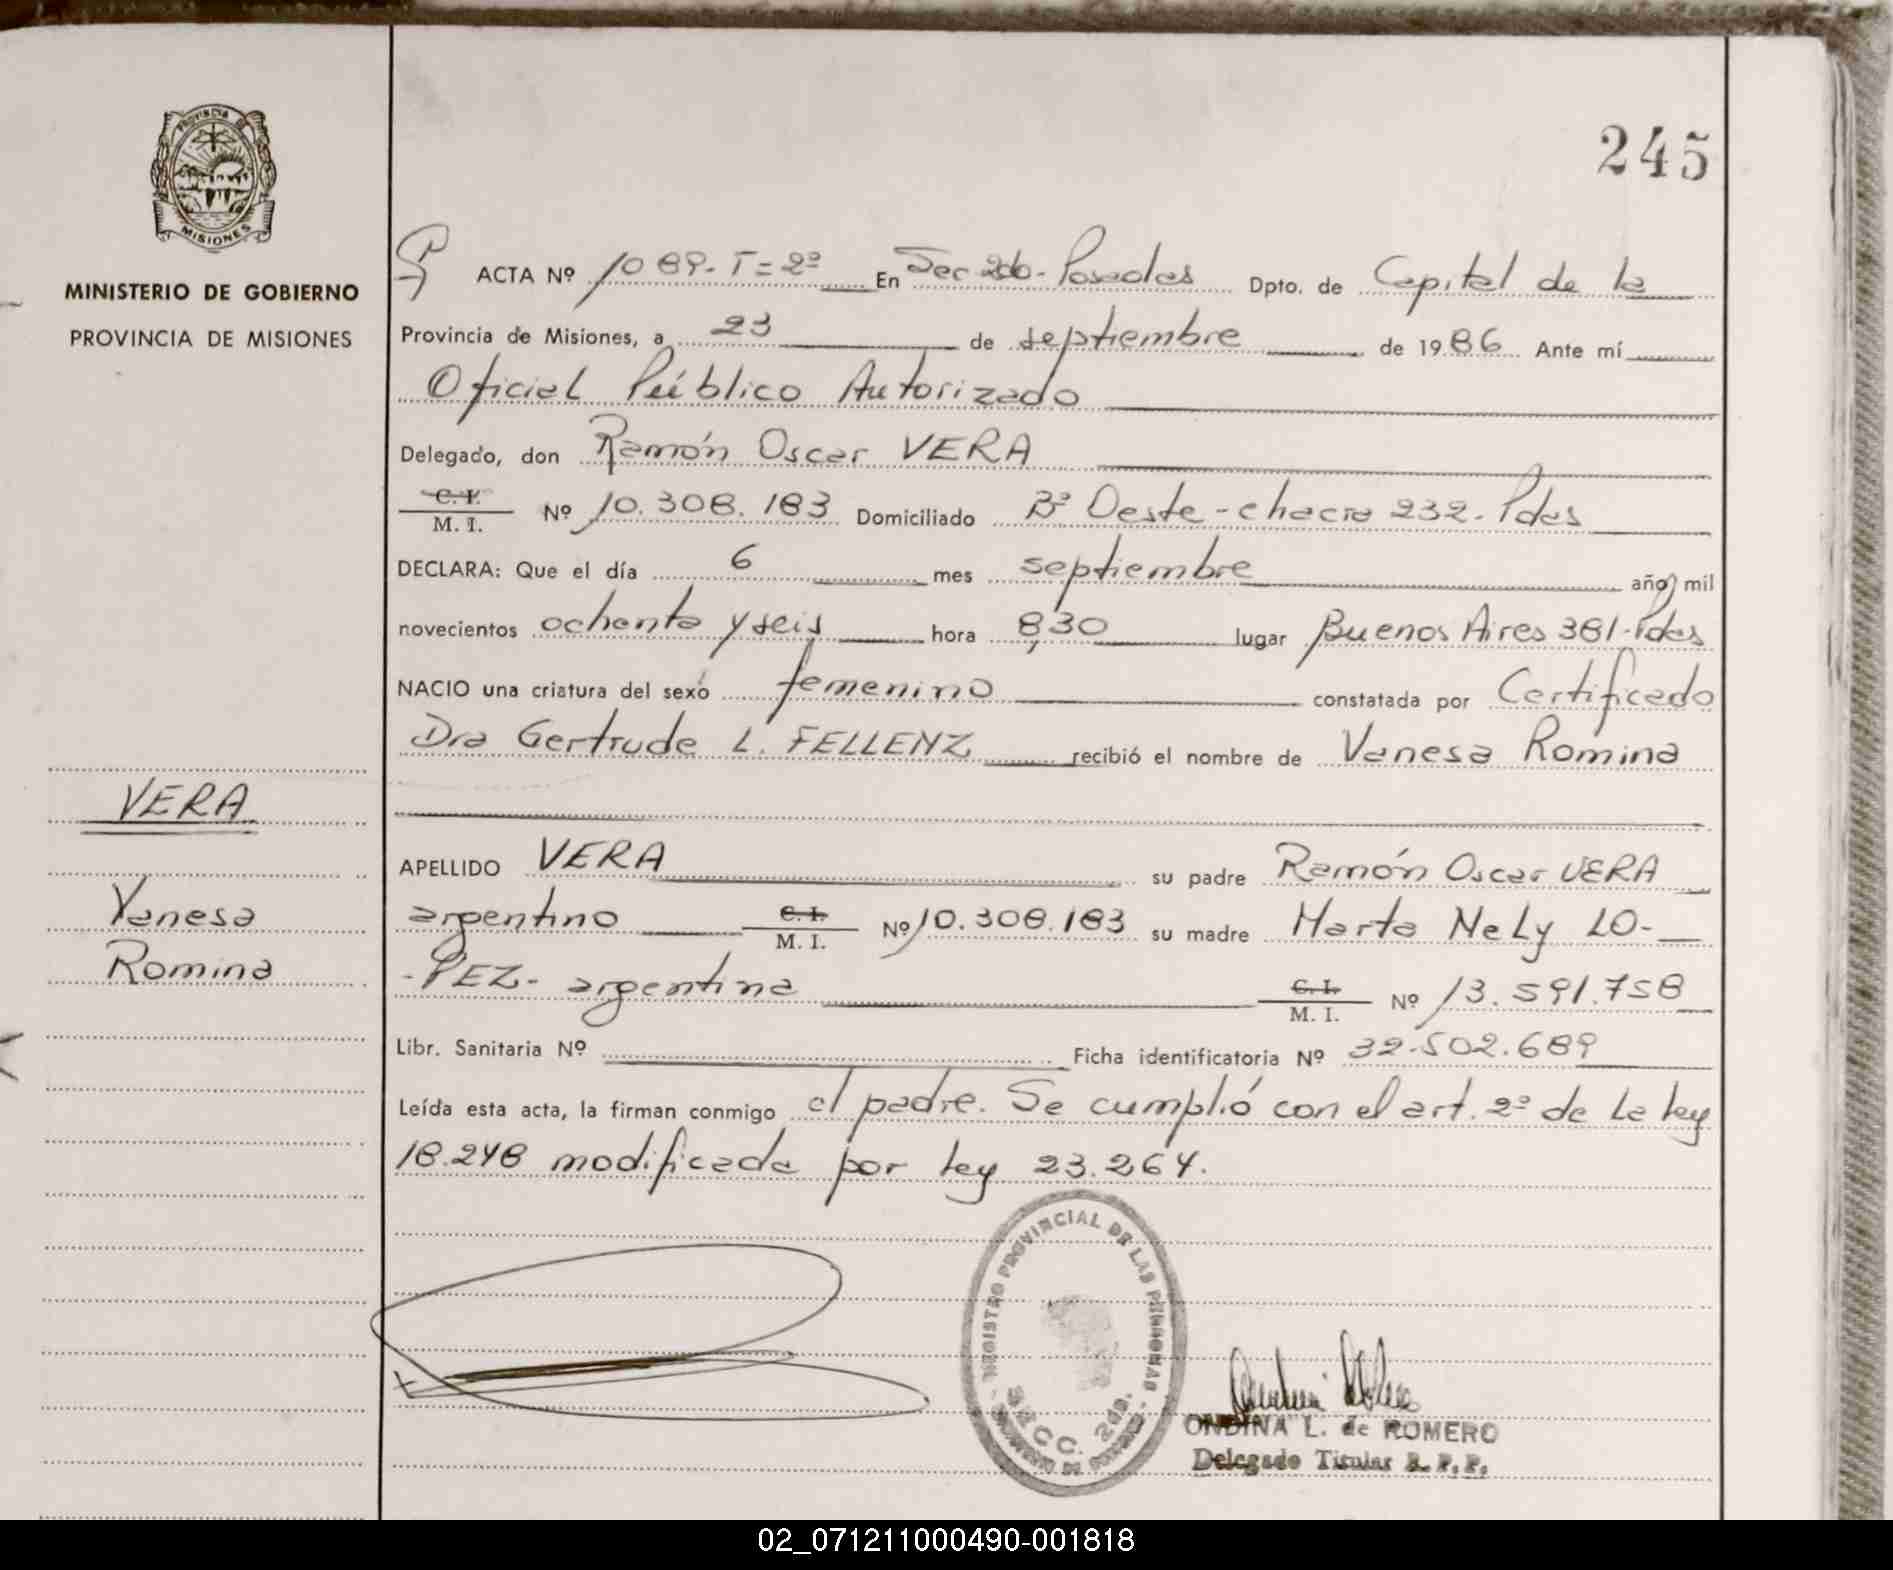 245
PROVINCIA DE
MISIONES
MINISTERIO DE GOBIERNO
PROVINCIA DE MISIONES
ACTA Nº 1089-T=2º En Sec 2da-Posadas Dpto. de Capital de la
Provincia de Misiones, a 23 de septiembre de 1986 Ante mí
Oficial Público Autorizado
Delegado, don Ramón Oscar VERA
C. I. M. I. Nº 10.308.183 Domiciliado Bº Oeste-chacra 232-Pdas
DECLARA: Que el día 6 mes septiembre año mil
novecientos ochenta y seis hora 8,30 lugar Buenos Aires 381-Pdas
NACIO una criatura del sexo femenino constatada por Certificado
Dra Gertrude L. FELLENZ recibió el nombre de Vanesa Romina
VERA
APELLIDO VERA su padre Ramón Oscar VERA
Vanesa
argentino C. I. M. I. Nº 10.308.183 su madre Marta Nely LO-
Romina
-PEZ- argentina C. I. M. I. Nº 13.591.758
Libr. Sanitaria Nº Ficha identificatoria Nº 32.502.689
Leída esta acta, la firman conmigo el padre. Se cumplió con el art. 2º de la ley
18.248 modificada por ley 23.264.
REGISTRO PROVINCIAL DE LAS PERSONAS
SECC. 2da.
ONDINA L. de ROMERO
Delegado Titular R. P. P.
02_071211000490-001818